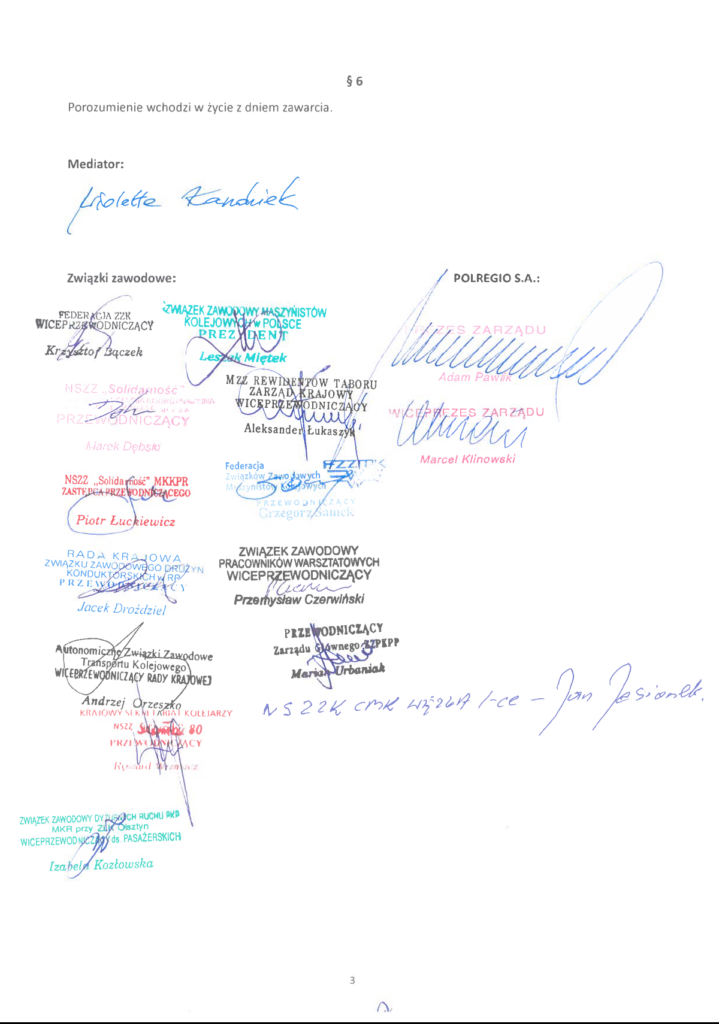 § 6
Porozumienie wchodzi w życie z dniem zawarcia.
Mediator:
Violetta
Związki zawodowe:
POLREGIO S.A.:
FEDERACJA ZZK
WICEPRZEWODNICZĄCY
Krzysztof Bączek
ZWIĄZEK ZAWODOWY MASZYNISTÓW
KOLEJOWYCH w POLSCE
PREZYDENT
Leszek Miętek
PREZES ZARZĄDU
Adam Pawlik
NSZZ „Solidarność"
PRZEWODNICZĄCY
Marek Dębski
MZZ REWIDENTÓW TABORU
ZARZĄD KRAJOWY
WICEPRZEWODNICZĄCY
Aleksander Łukaszyk
WICEPREZES ZARZĄDU
Marcel Klinowski
NSZZ „Solidarność" MKKPR
ZASTĘPCA PRZEWODNICZĄCEGO
Piotr Łuckiewicz
Federacja
Związków Zawodowych
Maszynistów Kolejowych
PRZEWODNICZĄCY
Grzegorz Samek
RADA KRAJOWA
ZWIĄZKU ZAWODOWEGO DRUŻYN
KONDUKTORSKICH w RP
PRZEWODNICZĄCY
Jacek Droździel
ZWIĄZEK ZAWODOWY
PRACOWNIKÓW WARSZTATOWYCH
WICEPRZEWODNICZĄCY
Przemysław Czerwiński
Autonomiczne Związki Zawodowe
Transportu Kolejowego
WICEPRZEWODNICZĄCY RADY KRAJOWEJ
Andrzej Orzeszko
PRZEWODNICZĄCY
Zarządu Głównego ZZPKPP
Marian Urbaniak
KRAJOWY SEKRETARIAT KOLEJARZY
NSZZ Solidarność 80
PRZEWODNICZĄCY
Ryszard
NSZZK CMK Jan Jasionek.
ZWIĄZEK ZAWODOWY DYŻURNYCH RUCHU PKP
MKR przy Olsztyn
WICEPRZEWODNICZĄCY ds. PASAŻERSKICH
Izabela Kozłowska
3